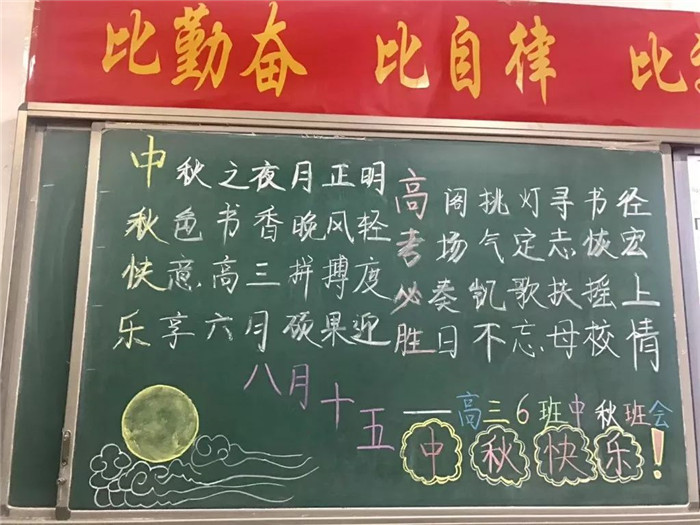 比勤奋 比自律 比
中秋之夜月正明
秋色书香晚风轻
快意高三拼搏度
乐享六月硕果迎
高阁挑灯寻书径
考场气定志恢宏
必奏凯歌扶摇上
胜日不忘母校情
八月十五
——高三6班中秋班会
中秋快乐！